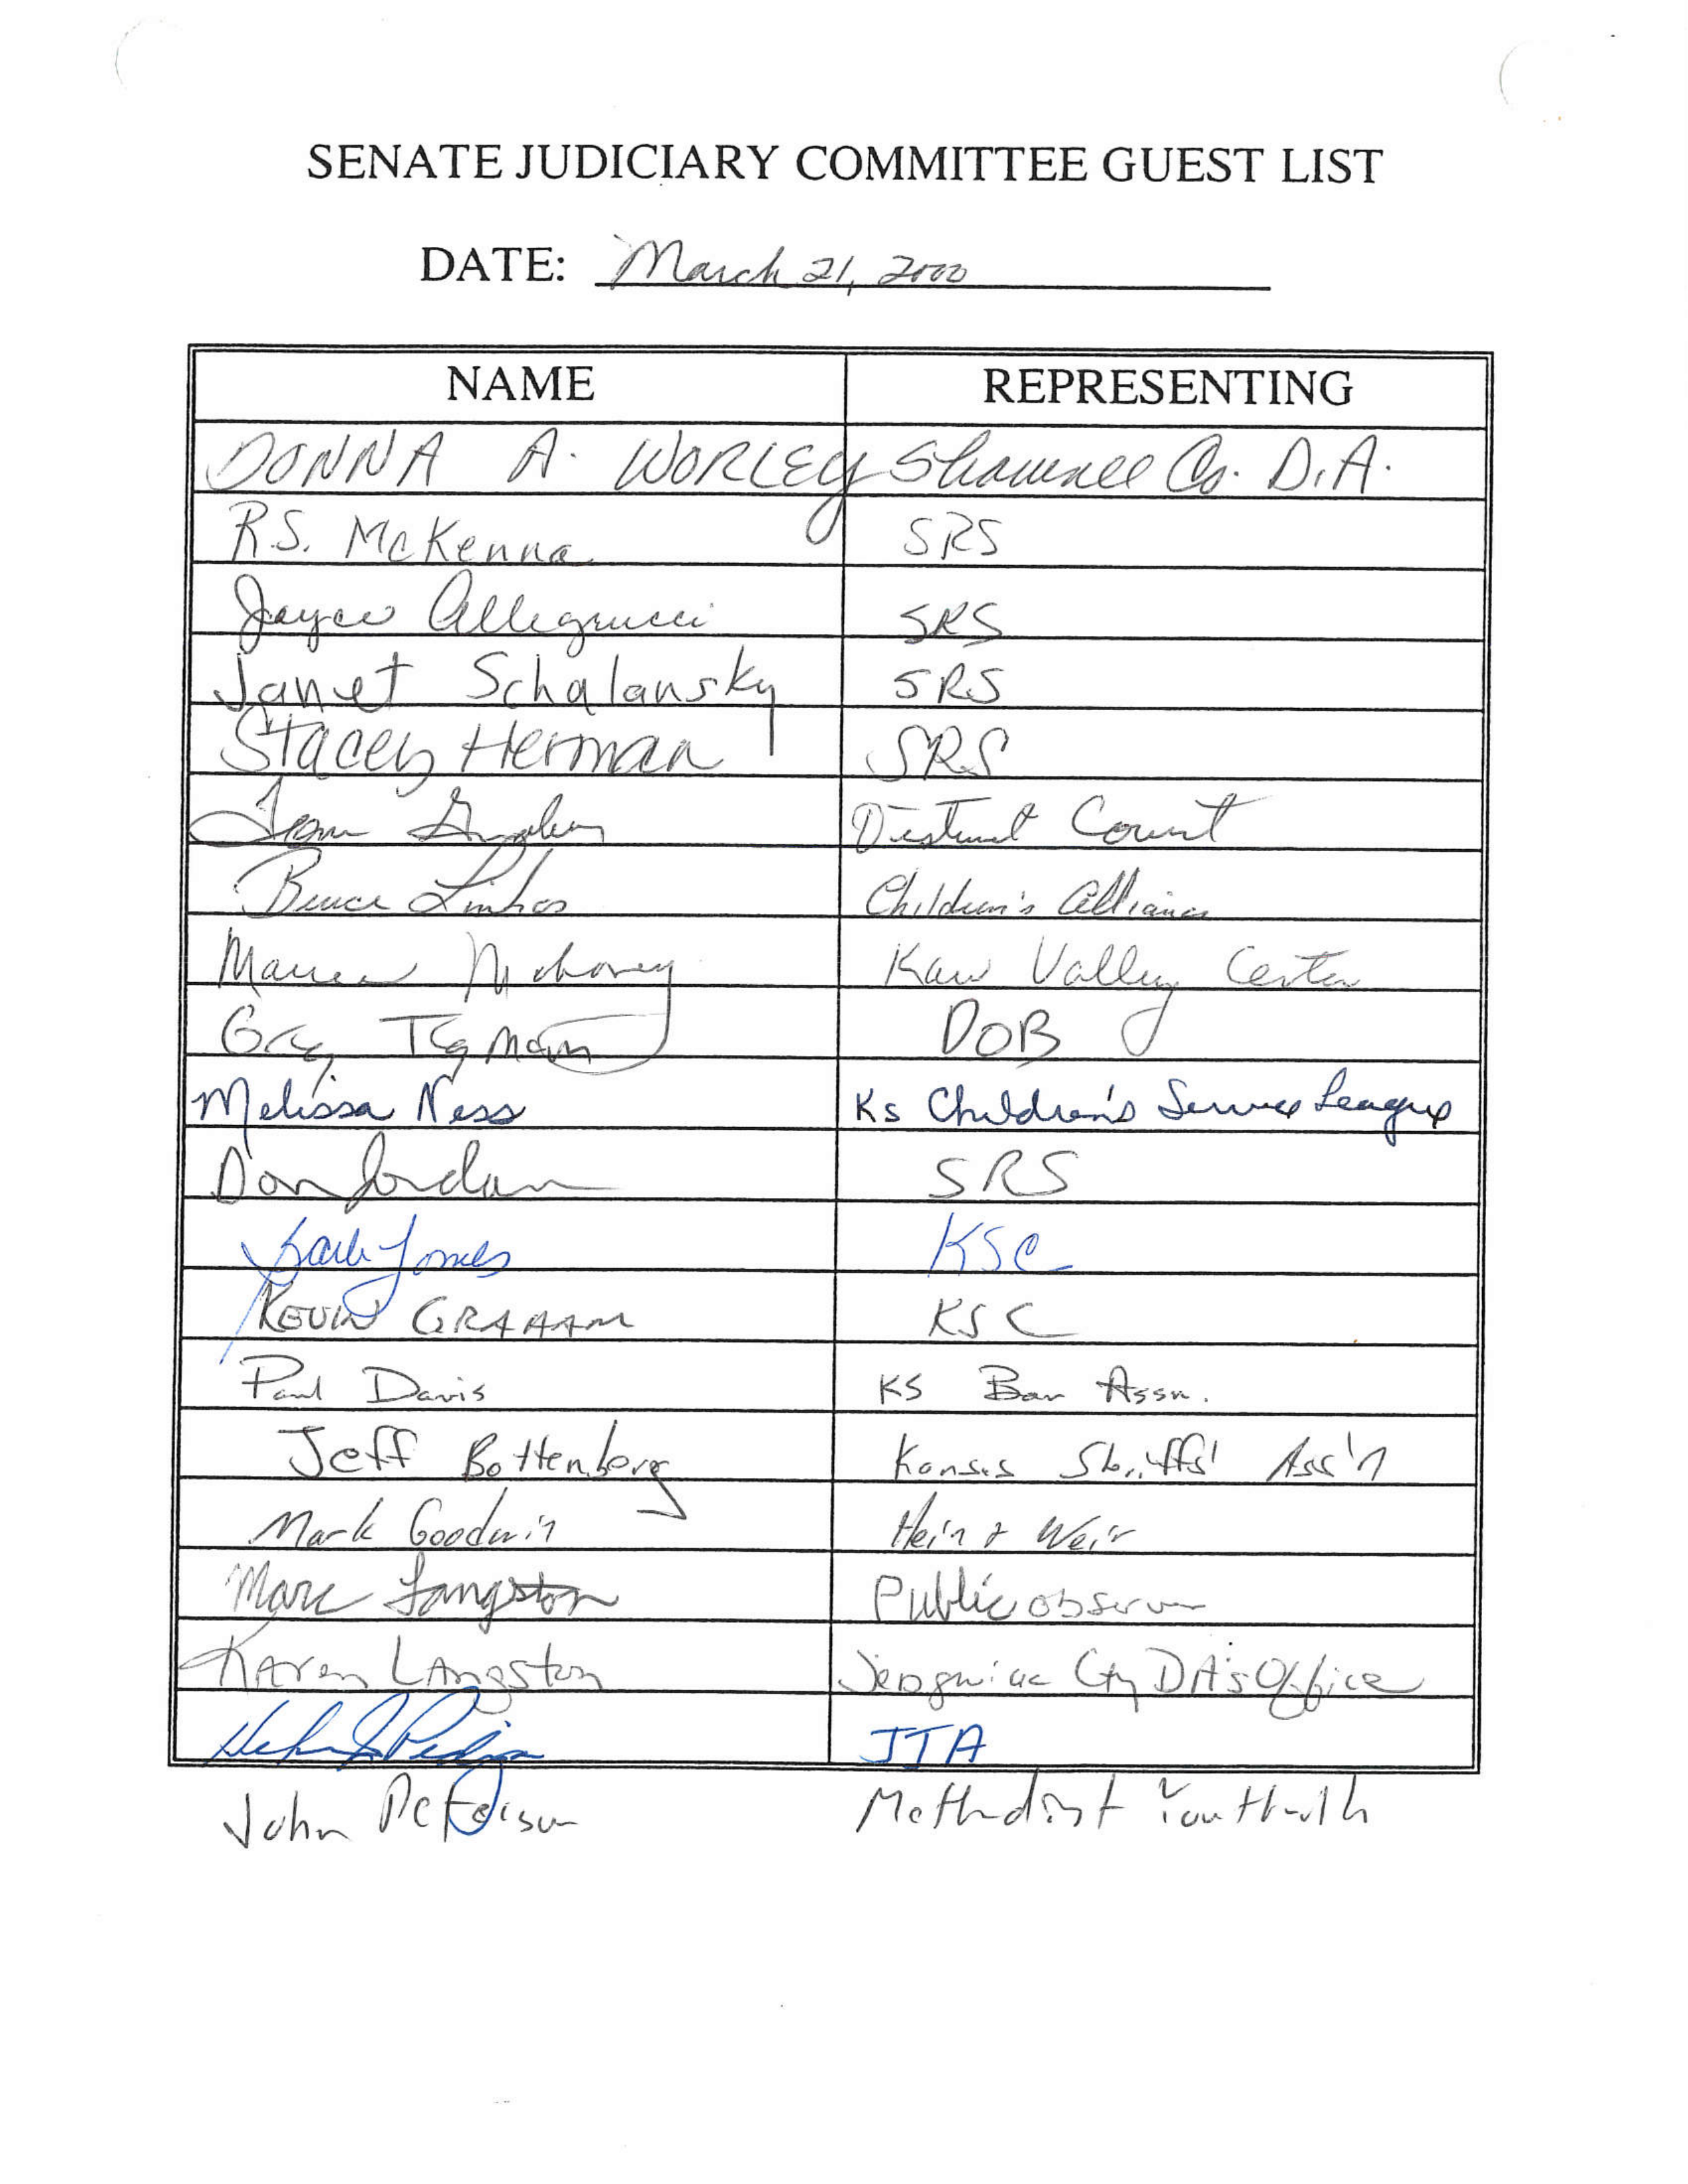 SENATE JUDICIARY COMMITTEE GUEST LIST
DATE: March 21, 2000
NAME REPRESENTING
DONNA A. WORLEY Shawnee Co. D.A.
R.S. McKenna SRS
Joyce Allegrucci SRS
Janet Schalansky SRS
Stacey Herman SRS
District Court
Bruce Linhos Children's Alliance
Mahoney Kaw Valley Center
Greg Tugman DOB
Melissa Ness Ks Children's Service League
Don Jordan SRS
Barb Tombs KSC
KEVIN GRAHAM KSC
Paul Davis KS Bar Assn.
Jeff Bottenberg Kansas Sheriffs' Ass'n
Mark Goodwin Hein + Weir
Marc Langston Public observer
Karen Langston Sedgwick Cty DA's Office
JJA
John Peterson Methodist Youthville